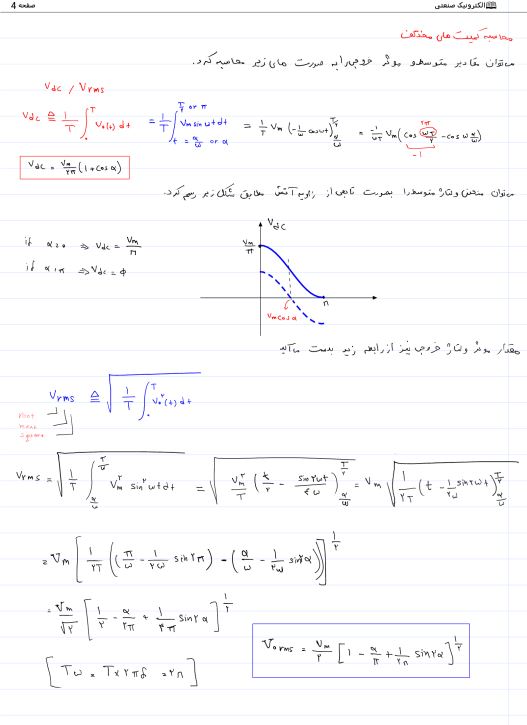 الکترونیک صنعتی صفحه 4
محاسبه کمیت های مختلف
می‌توان مقادیر متوسط و موثر خروجی را به صورت های زیر محاسبه کرد.
Vdc / Vrms
Vdc ≜ 1/T ∫₀ᵀ V₀(t) dt = 1/T ∫_{t=α/ω or α}^{T/۲ or π} Vm sin ωt dt = 1/T Vm (-1/ω cos ωt)_{α/ω}^{T/۲} = -1/ωT Vm (cos ωT/۲ - cos ω α/ω)
۲π
-1
Vdc = Vm/۲π (1 + cos α)
می‌توان منحنی ولتاژ متوسط را بصورت تابعی از زاویه آتش مطابق شکل زیر رسم کرد.
Vdc
if α=0 ⇒ Vdc = Vm/π
Vm/π
if α=π ⇒ Vdc = φ
π
Vm cos α
مقدار موثر ولتاژ خروجی نیز از رابطه زیر بدست می‌آید
Vrms ≜ √(1/T ∫₀ᵀ V₀^۲(t) dt)
root
mean
square
Vrms = √(1/T ∫_{α/ω}^{T/۲} Vm^۲ sin^۲ ωt dt) = √(Vm^۲/T (t/۲ - sin ۲ωt/۴ω)_{α/ω}^{T/۲}) = Vm √(1/۲T (t - 1/۲ω sin ۲ωt)_{α/ω}^{T/۲})
= Vm [1/۲T ((π/ω - 1/۲ω sin ۲π) - (α/ω - 1/۲ω sin ۲α))]^{1/۲}
= Vm/√۲ [1/۲ - α/۲π + 1/۴π sin ۲α]^{1/۲}
V₀rms = Vm/۲ [1 - α/π + 1/۲π sin ۲α]^{1/۲}
[Tω = T×۲πf = ۲π]